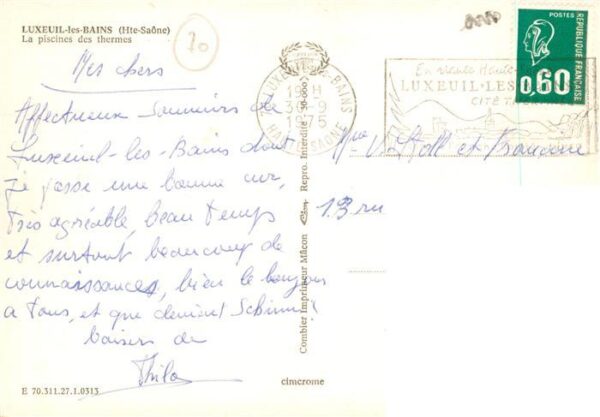 LUXEUIL-les-BAINS (Hte-Saône)
La piscines des thermes
20
Mes chers
Affectueux Souvenirs de
Luxeuil-les-Bains dont
je passe une bonne cure,
très agréable, beau temps
et surtout beaucoup de
connaissances, bien le bonjour
a Tous, et que devient
baisers de
E 70.311.27.1.0313
Combier Imprimeur Mâcon
Repro. Interdite 50.000
cimcrome
70 LUXEUIL-LES-BAINS
HAUTE-SAÔNE
19H
30-9
1975
LUXEUIL-LES
POSTES
REPUBLIQUE FRANÇAISE
0,60
et
13 rue